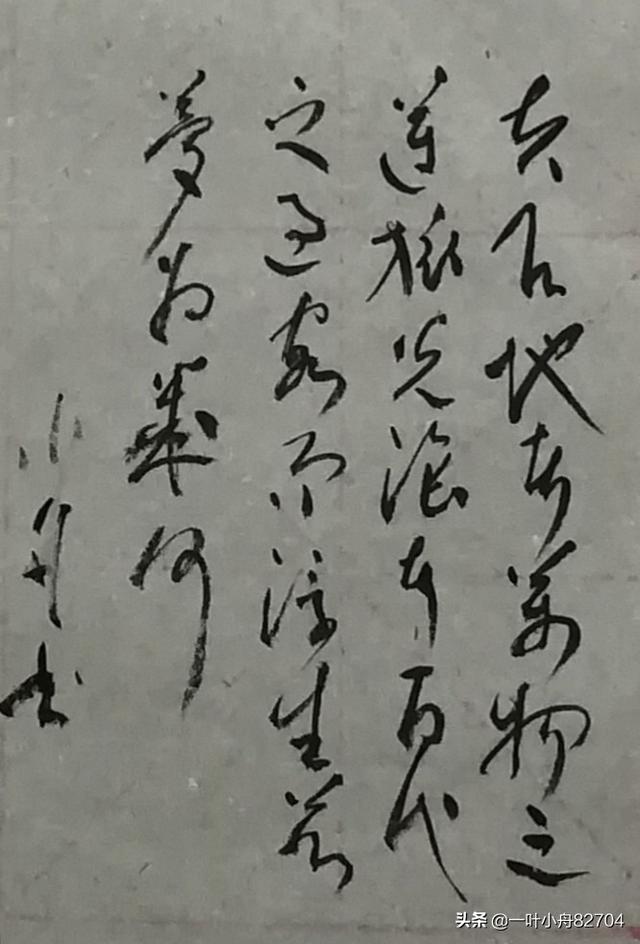 夫天地者萬物之
逆旅光陰者百代
之過客而浮生若
夢為幾何
小舟书
头条 @一叶小舟82704